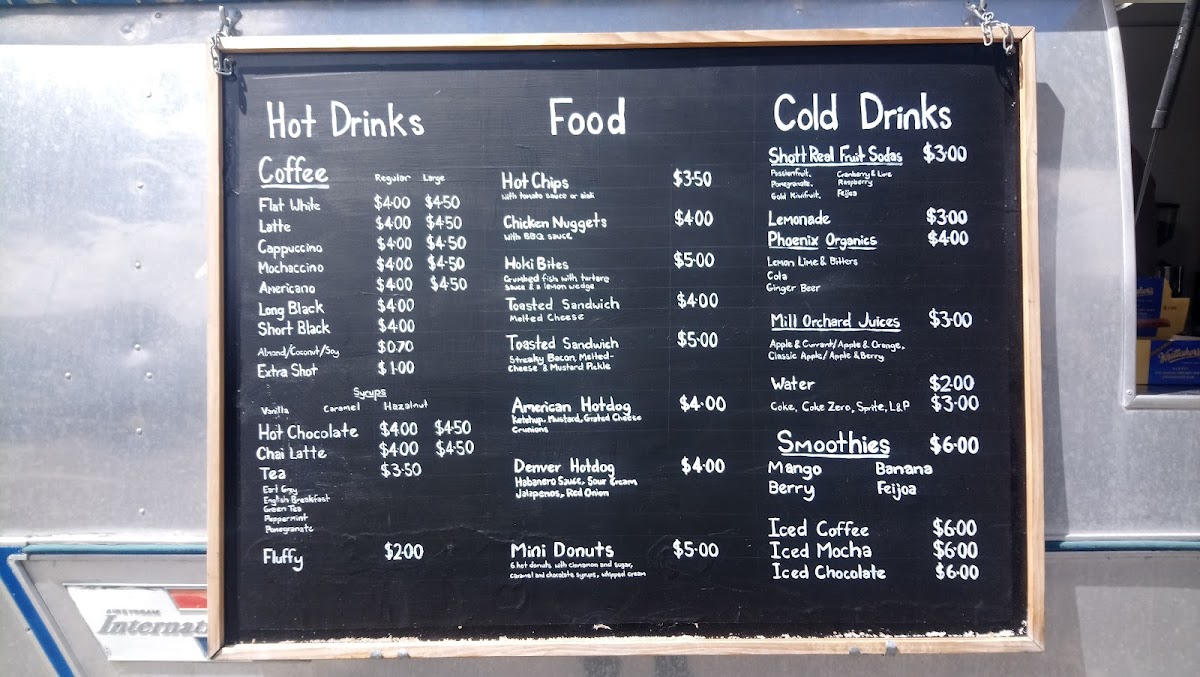 Hot Drinks
Coffee
Regular Large
Flat White $4.00 $4.50
Latte $4.00 $4.50
Cappuccino $4.00 $4.50
Mochaccino $4.00 $4.50
Americano $4.00 $4.50
Long Black $4.00
Short Black $4.00
Almond/Coconut/Soy $0.70
Extra Shot $1.00
Syrups
Vanilla Caramel Hazelnut
Hot Chocolate $4.00 $4.50
Chai Latte $4.00 $4.50
Tea $3.50
Earl Grey
English Breakfast
Green Tea
Peppermint
Pomegranate
Fluffy $2.00
Food
Hot Chips $3.50
with tomato sauce or aioli
Chicken Nuggets $4.00
with BBQ sauce
Hoki Bites $5.00
Crumbed fish with tartare
sauce & a lemon wedge
Toasted Sandwich $4.00
Melted Cheese
Toasted Sandwich $5.00
Streaky Bacon, Melted-
Cheese & Mustard Pickle
American Hotdog $4.00
Ketchup, Mustard, Grated Cheese
Crunions
Denver Hotdog $4.00
Habanero Sauce, Sour Cream
Jalapenos, Red Onion
Mini Donuts $5.00
6 hot donuts with cinnamon and sugar,
caramel and chocolate syrups, whipped cream
Cold Drinks
Shott Real Fruit Sodas $3.00
Passionfruit. Cranberry & Lime
Pomegranate. Raspberry
Gold Kiwifruit. Feijoa
Lemonade $3.00
Phoenix Organics $4.00
Lemon Lime & Bitters
Cola
Ginger Beer
Mill Orchard Juices $3.00
Apple & Currant/Apple & Orange,
Classic Apple/Apple & Berry
Water $2.00
Coke, Coke Zero, Sprite, L&P $3.00
Smoothies $6.00
Mango Banana
Berry Feijoa
Iced Coffee $6.00
Iced Mocha $6.00
Iced Chocolate $6.00
AIRSTREAM
Internat
Whittaker's